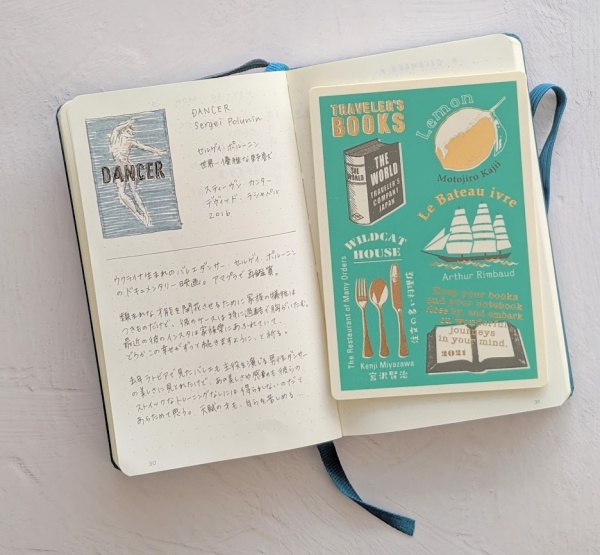 DANCER
DANCER
Sergei Polunin
セルゲイ・ポルーニン
世界一優雅な野獣
スティーヴン・カンター
デヴィッド・ラシャペル
2016
ウクライナ生まれのバレエダンサー、セルゲイ・ポルーニン
のドキュメンタリー映画。アマプラで再鑑賞。
類まれな才能を開花させるために家族の犠牲は
つきものだけど、彼のケースは特に過酷で胸がいたむ。
最近の彼のインスタは家族愛にあふれていて、
どうかこの幸せがずっと続きますように、と祈る。
去年テレビで見たバレエも主役を演じる男子ダンサー
の美しさに見とれたけど、あの美しさや感動も彼らの
ストイックなトレーニングなしには得られないのだと
あらためて思う。天賦の才も、自らを苦しめる…
30
TRAVELER'S
BOOKS
Lemon
Motojiro Kajii
THE
WORLD
THE
WORLD
TRAVELER'S
COMPANY
JAPAN
Le Bateau ivre
Arthur Rimbaud
WILDCAT
HOUSE
The Restaurant of Many Orders
Kenji Miyazawa
宮沢賢治
Keep your books
and your notebook
close by and embark
on wonderful
journeys
in your mind.
2021
31